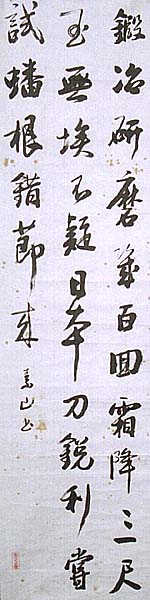 鍛冶研磨幾百回霜降三尺
玉無埃不疑日本刀鋭利嘗
試蟠根錯節来
山書